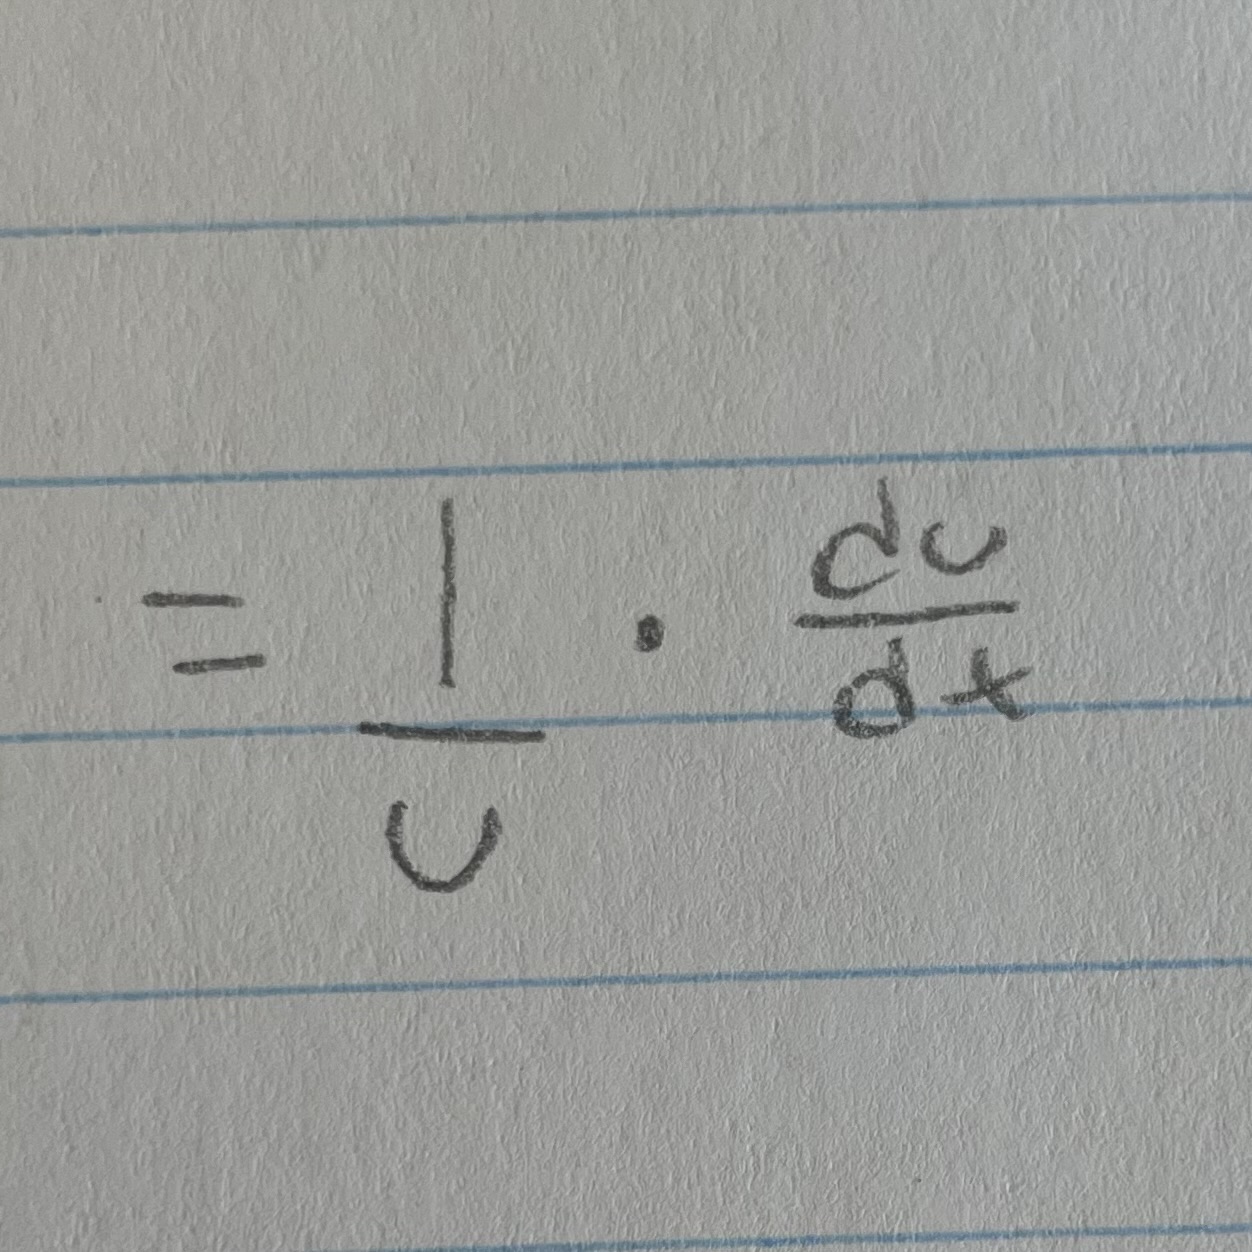 = 1/u · du/dt